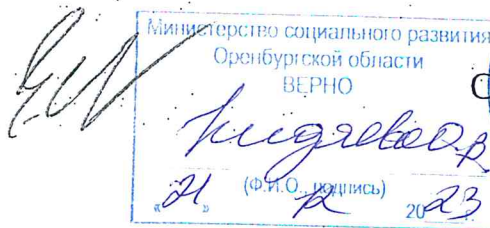 Министерство социального развития
Оренбургской области
ВЕРНО
(Ф.И.О., подпись)
«21» 12 2023